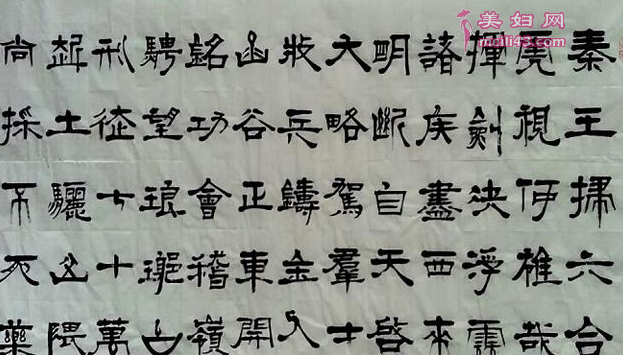 秦王掃六合
虎視伊雄哉
揮劍決浮雲
諸侯盡西來
明斷自天啓
大略駕羣才
收兵鑄金人
函谷正東開
銘功會稽嶺
騁望琅琊臺
刑徒七十萬
起土驪山隈
尚採不死藥
美妇网
mcili43.com